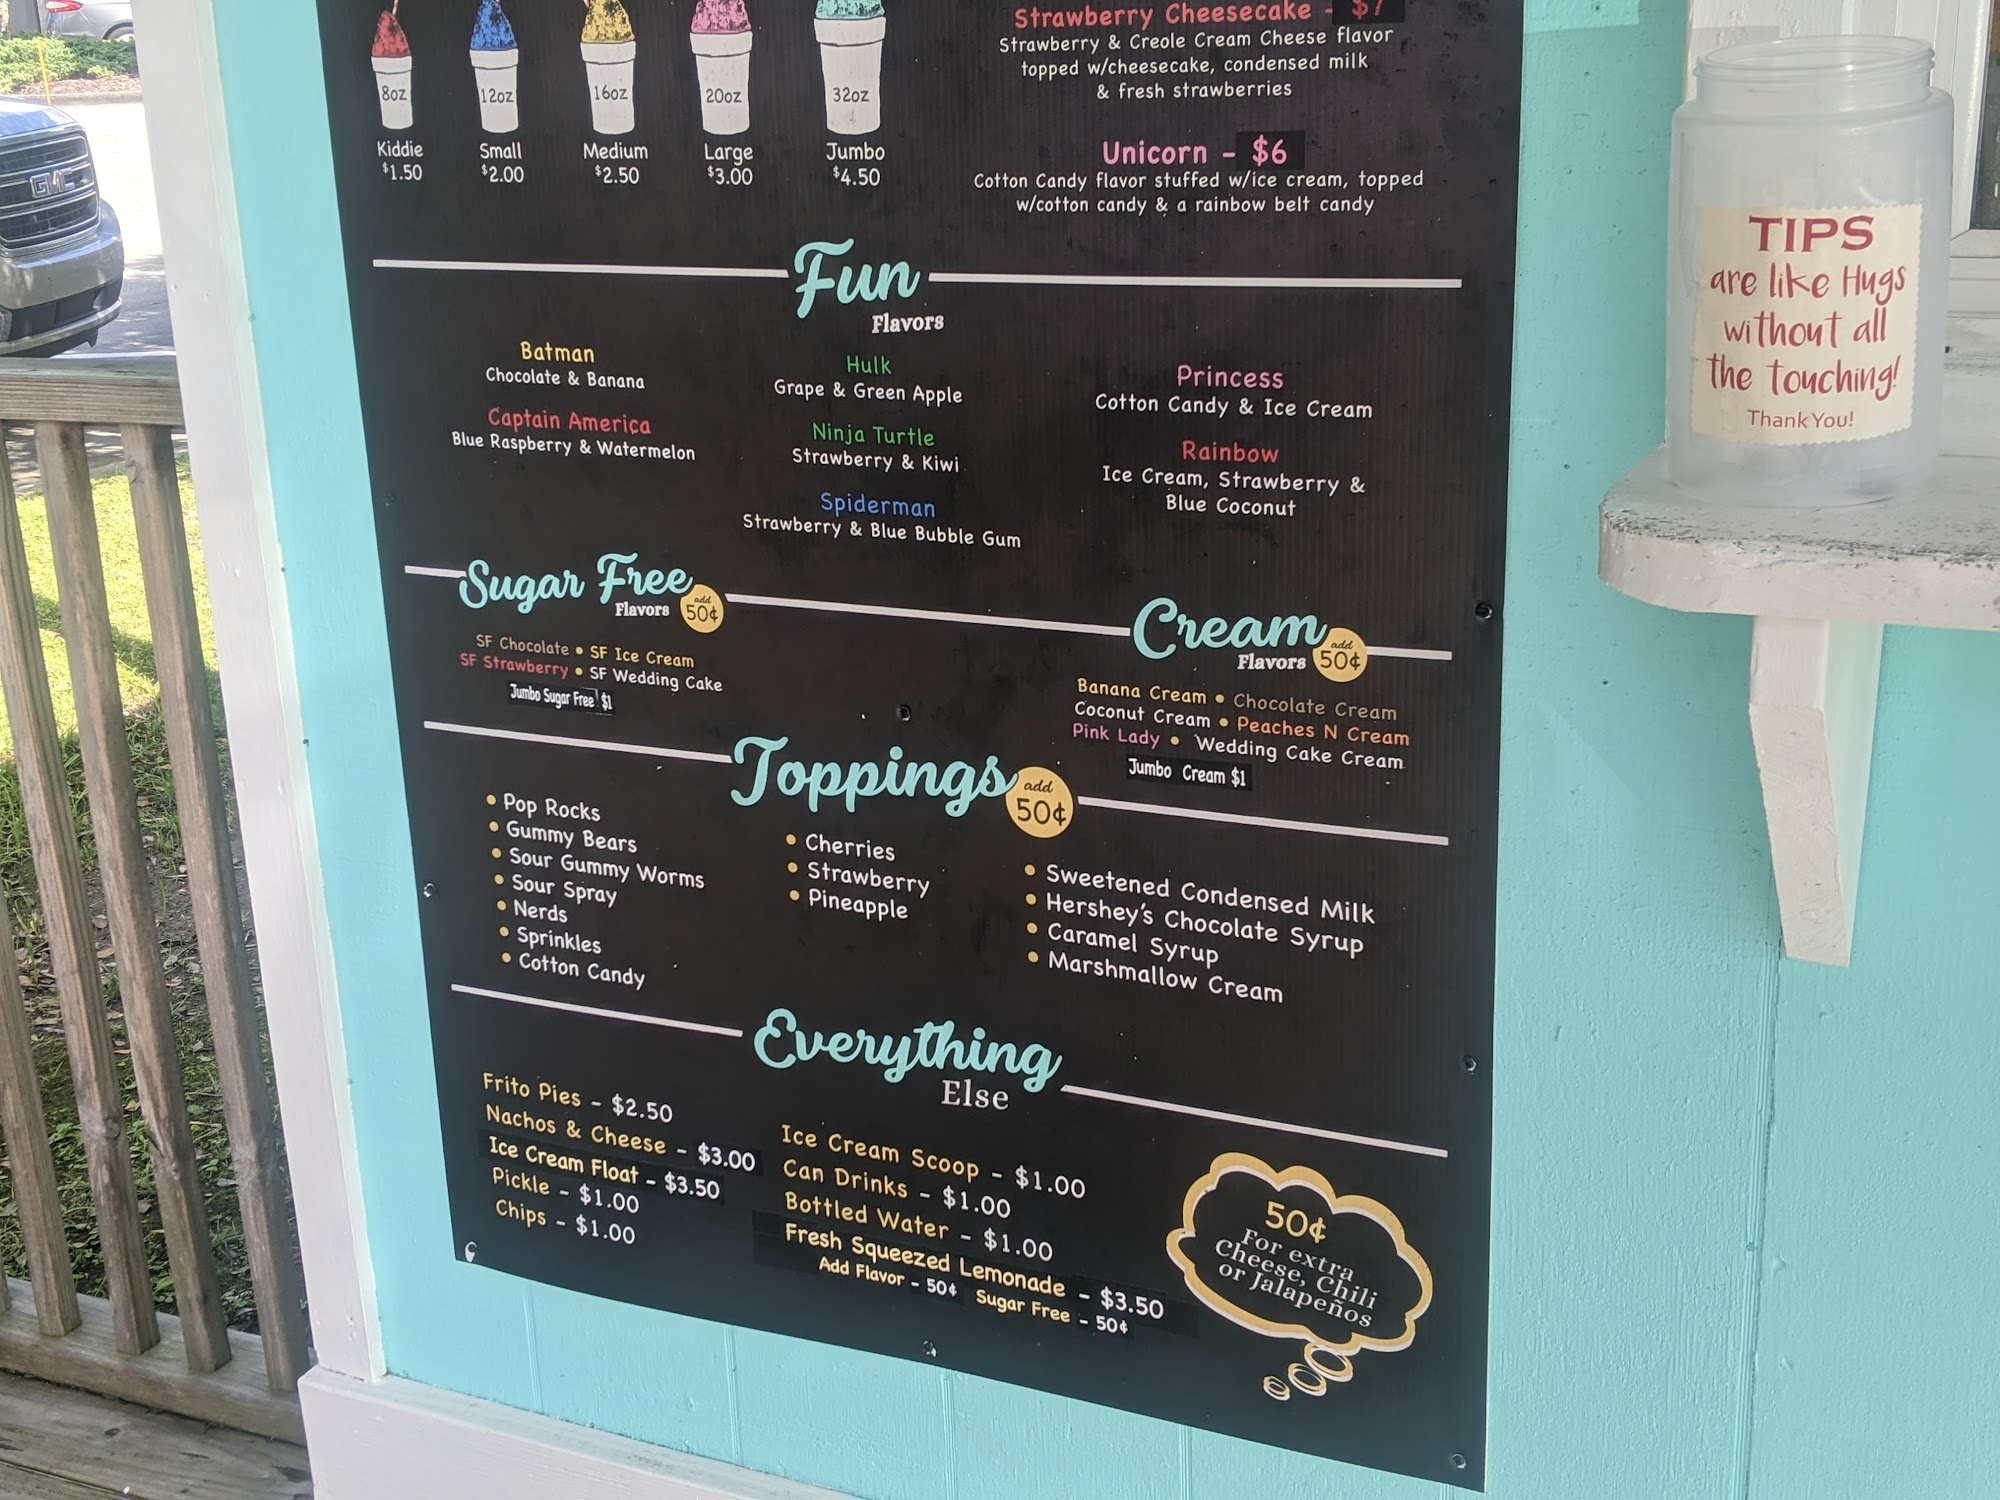 8oz
12oz
16oz
20oz
32oz
Kiddie
$1.50
Small
$2.00
Medium
$2.50
Large
$3.00
Jumbo
$4.50
Strawberry Cheesecake - $7
Strawberry & Creole Cream Cheese flavor
topped w/cheesecake, condensed milk
& fresh strawberries
Unicorn - $6
Cotton Candy flavor stuffed w/ice cream, topped
w/cotton candy & a rainbow belt candy
Fun
Flavors
Batman
Chocolate & Banana
Captain America
Blue Raspberry & Watermelon
Hulk
Grape & Green Apple
Ninja Turtle
Strawberry & Kiwi
Spiderman
Strawberry & Blue Bubble Gum
Princess
Cotton Candy & Ice Cream
Rainbow
Ice Cream, Strawberry &
Blue Coconut
Sugar Free
Flavors
add
50¢
SF Chocolate • SF Ice Cream
SF Strawberry • SF Wedding Cake
Jumbo Sugar Free $1
Cream
Flavors
add
50¢
Banana Cream • Chocolate Cream
Coconut Cream • Peaches N Cream
Pink Lady • Wedding Cake Cream
Jumbo Cream $1
Toppings
add
50¢
• Pop Rocks
• Gummy Bears
• Sour Gummy Worms
• Sour Spray
• Nerds
• Sprinkles
• Cotton Candy
• Cherries
• Strawberry
• Pineapple
• Sweetened Condensed Milk
• Hershey's Chocolate Syrup
• Caramel Syrup
• Marshmallow Cream
Everything
Else
Frito Pies - $2.50
Nachos & Cheese - $3.00
Ice Cream Float - $3.50
Pickle - $1.00
Chips - $1.00
Ice Cream Scoop - $1.00
Can Drinks - $1.00
Bottled Water - $1.00
Fresh Squeezed Lemonade - $3.50
Add Flavor - 50¢ Sugar Free - 50¢
50¢
For extra
Cheese, Chili
or Jalapeños
TIPS
are like Hugs
without all
the touching!
Thank You!
GMC